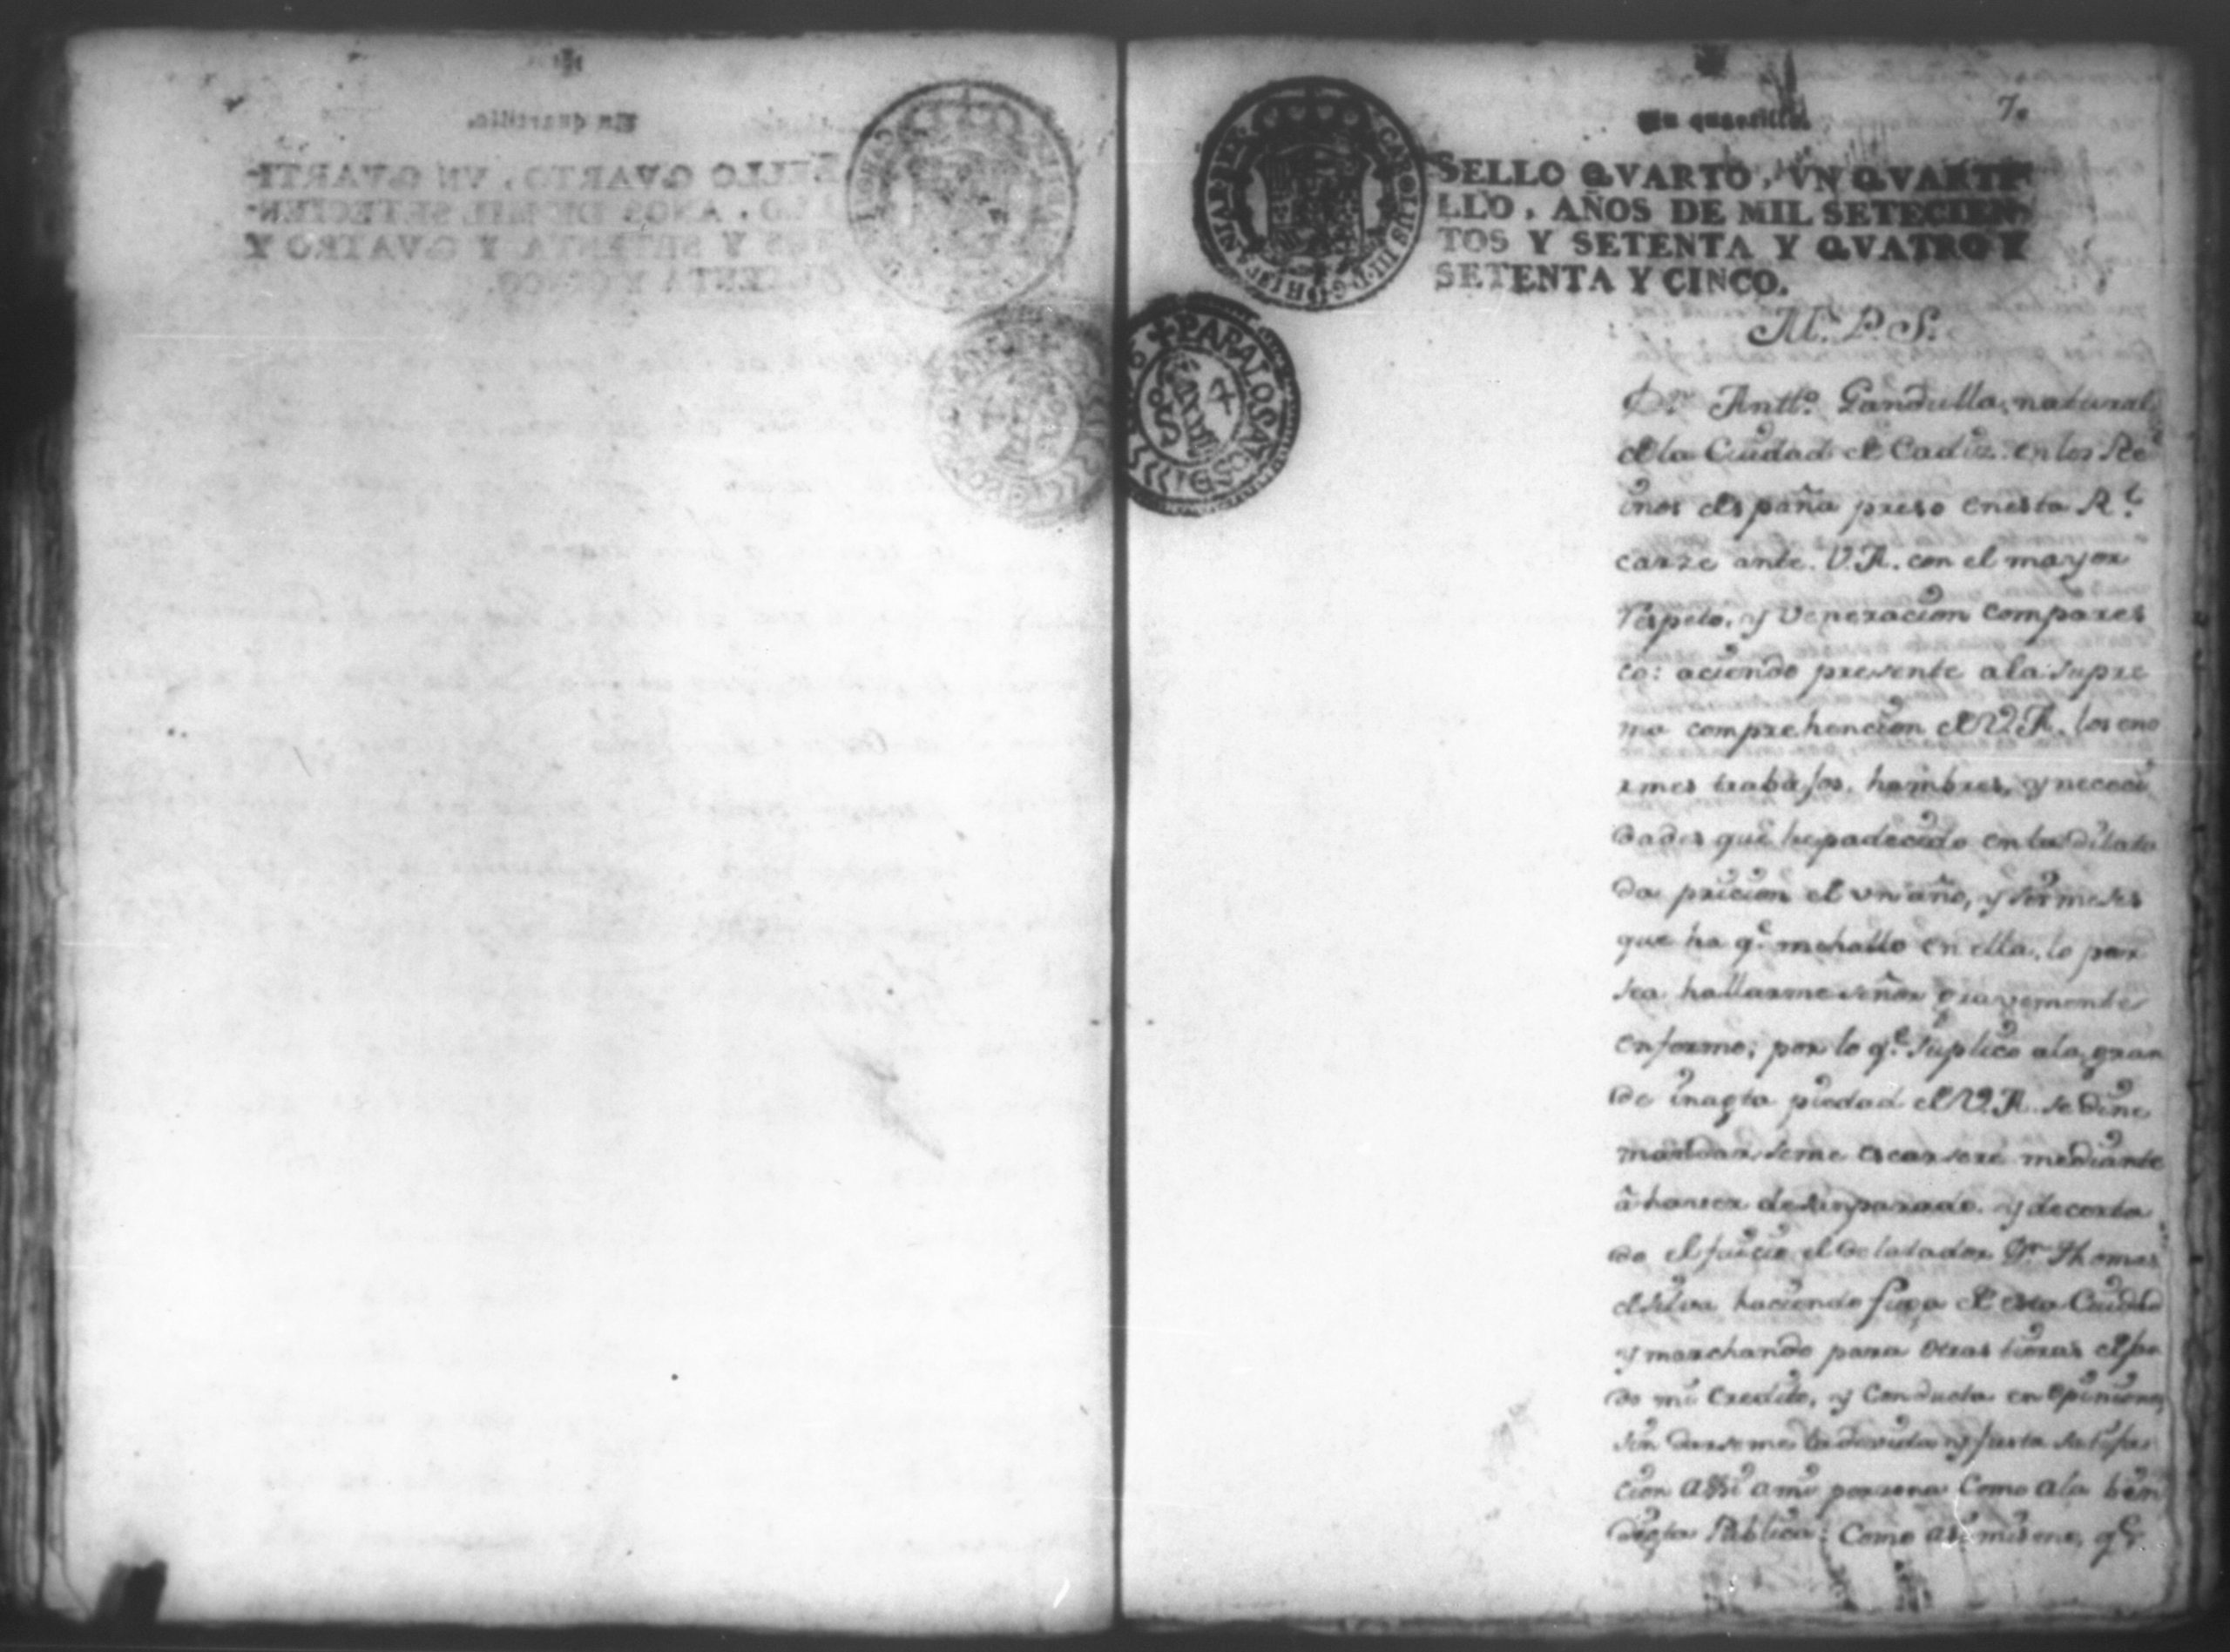 7.
Un quartillo.
SELLO QVARTO, VN QVARTI-
LLO, AÑOS DE MIL SETECIEN-
TOS Y SETENTA Y QVATRO Y
SETENTA Y CINCO.
CAROLUS III D G HISPANIAR REX
PARA LOS AÑOS DE
M. P. S.
Dn Antto. Gandulla, natural
de la Ciudad de Cadiz en los Re
inos de españa preso en esta Rl.
carze ante V.A. con el mayor
respeto, y veneracion compares
co: aciendo presente a la supre
ma comprehencion de V.A. los eno
rmes trabajos, hambres, y nececi
dades que he padecido en la dilata
da pricion de un año, y seis meses
que ha qe. me hallo en ella, lo por
sea hallarme señor gravemente
enfermo; por lo qe. suplico a la gran
de inagta piedad de V.A. se dine
mandar seme escarsere mediante
â haver desamparado y decerta
do el juicio el delatador Dn Thomas
de silva haciendo fuga de esta Ciudad
y marchando para otras tieras dejan
do mi credito, y Conducta en Opiniones
sin darseme la devida y justa satisfac
cion assi a mi persona Como a la bin
digta Publica: Como asimismo, qe.